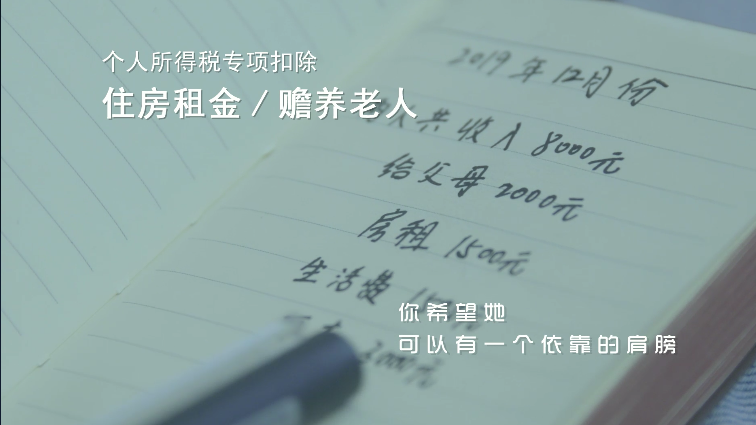 个人所得税专项扣除
住房租金/赡养老人
2019年12月份
共收入8000元
给父母2000元
房租1500元
生活费
2000元
你希望她
可以有一个依靠的肩膀